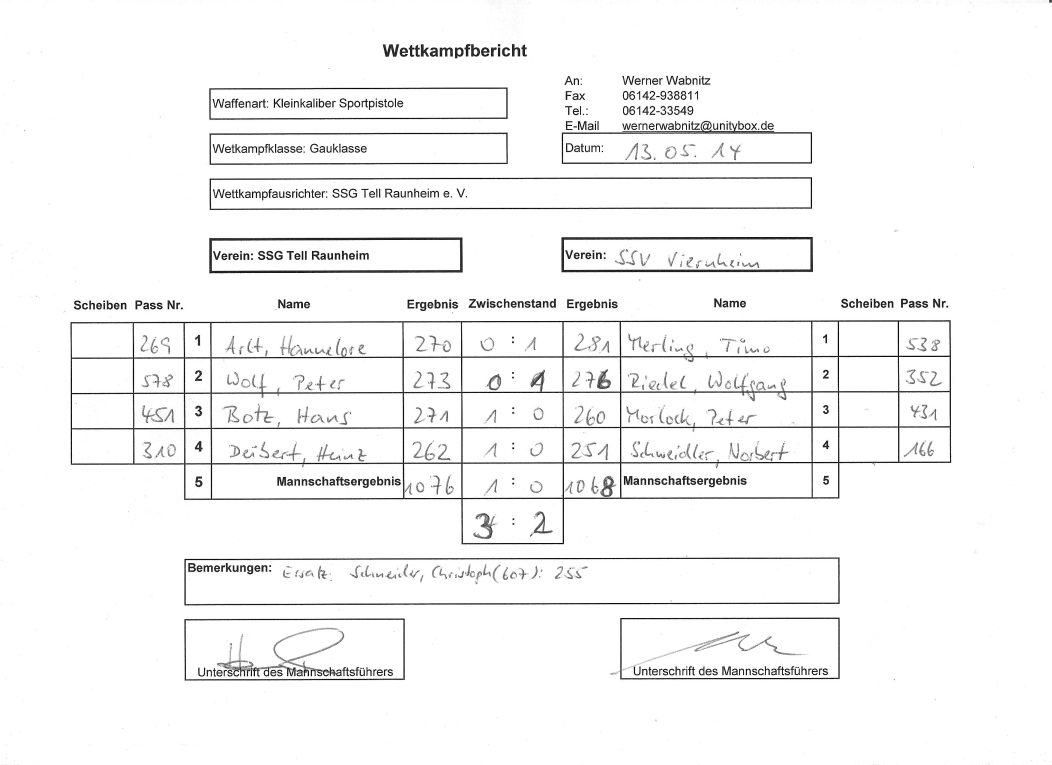 Wettkampfbericht
An: Werner Wabnitz
Fax 06142-938811
Tel.: 06142-33549
E-Mail wernerwabnitz@unitybox.de
Waffenart: Kleinkaliber Sportpistole
Wetkampfklasse: Gauklasse
Datum: 13.05.14
Wettkampfausrichter: SSG Tell Raunheim e. V.
Verein: SSG Tell Raunheim
Verein: SSV Viernheim
Scheiben Pass Nr. Name Ergebnis Zwischenstand Ergebnis Name Scheiben Pass Nr.
269 1 Arlt, Hannelore 270 0 : 1 281 Merling, Timo 1 538
578 2 Wolf, Peter 273 0 : 1 276 Riedel, Wolfgang 2 352
451 3 Botz, Hans 271 1 : 0 260 Morlock, Peter 3 431
310 4 Deibert, Heinz 262 1 : 0 251 Schweidler, Norbert 4 166
5 Mannschaftsergebnis 1076 1 : 0 1068 Mannschaftsergebnis 5
3 : 2
Bemerkungen: Ersatz: Schneider, Christoph (607): 255
Unterschrift des Mannschaftsführers
Unterschrift des Mannschaftsführers